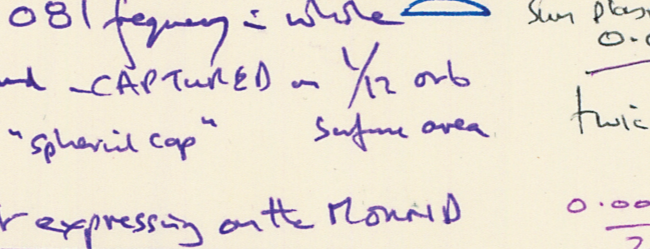 081 frequency = whole
CAPTURED in 1/12 orb
"spherical cap" surface area
twic
expressing on the MOUND
0.00